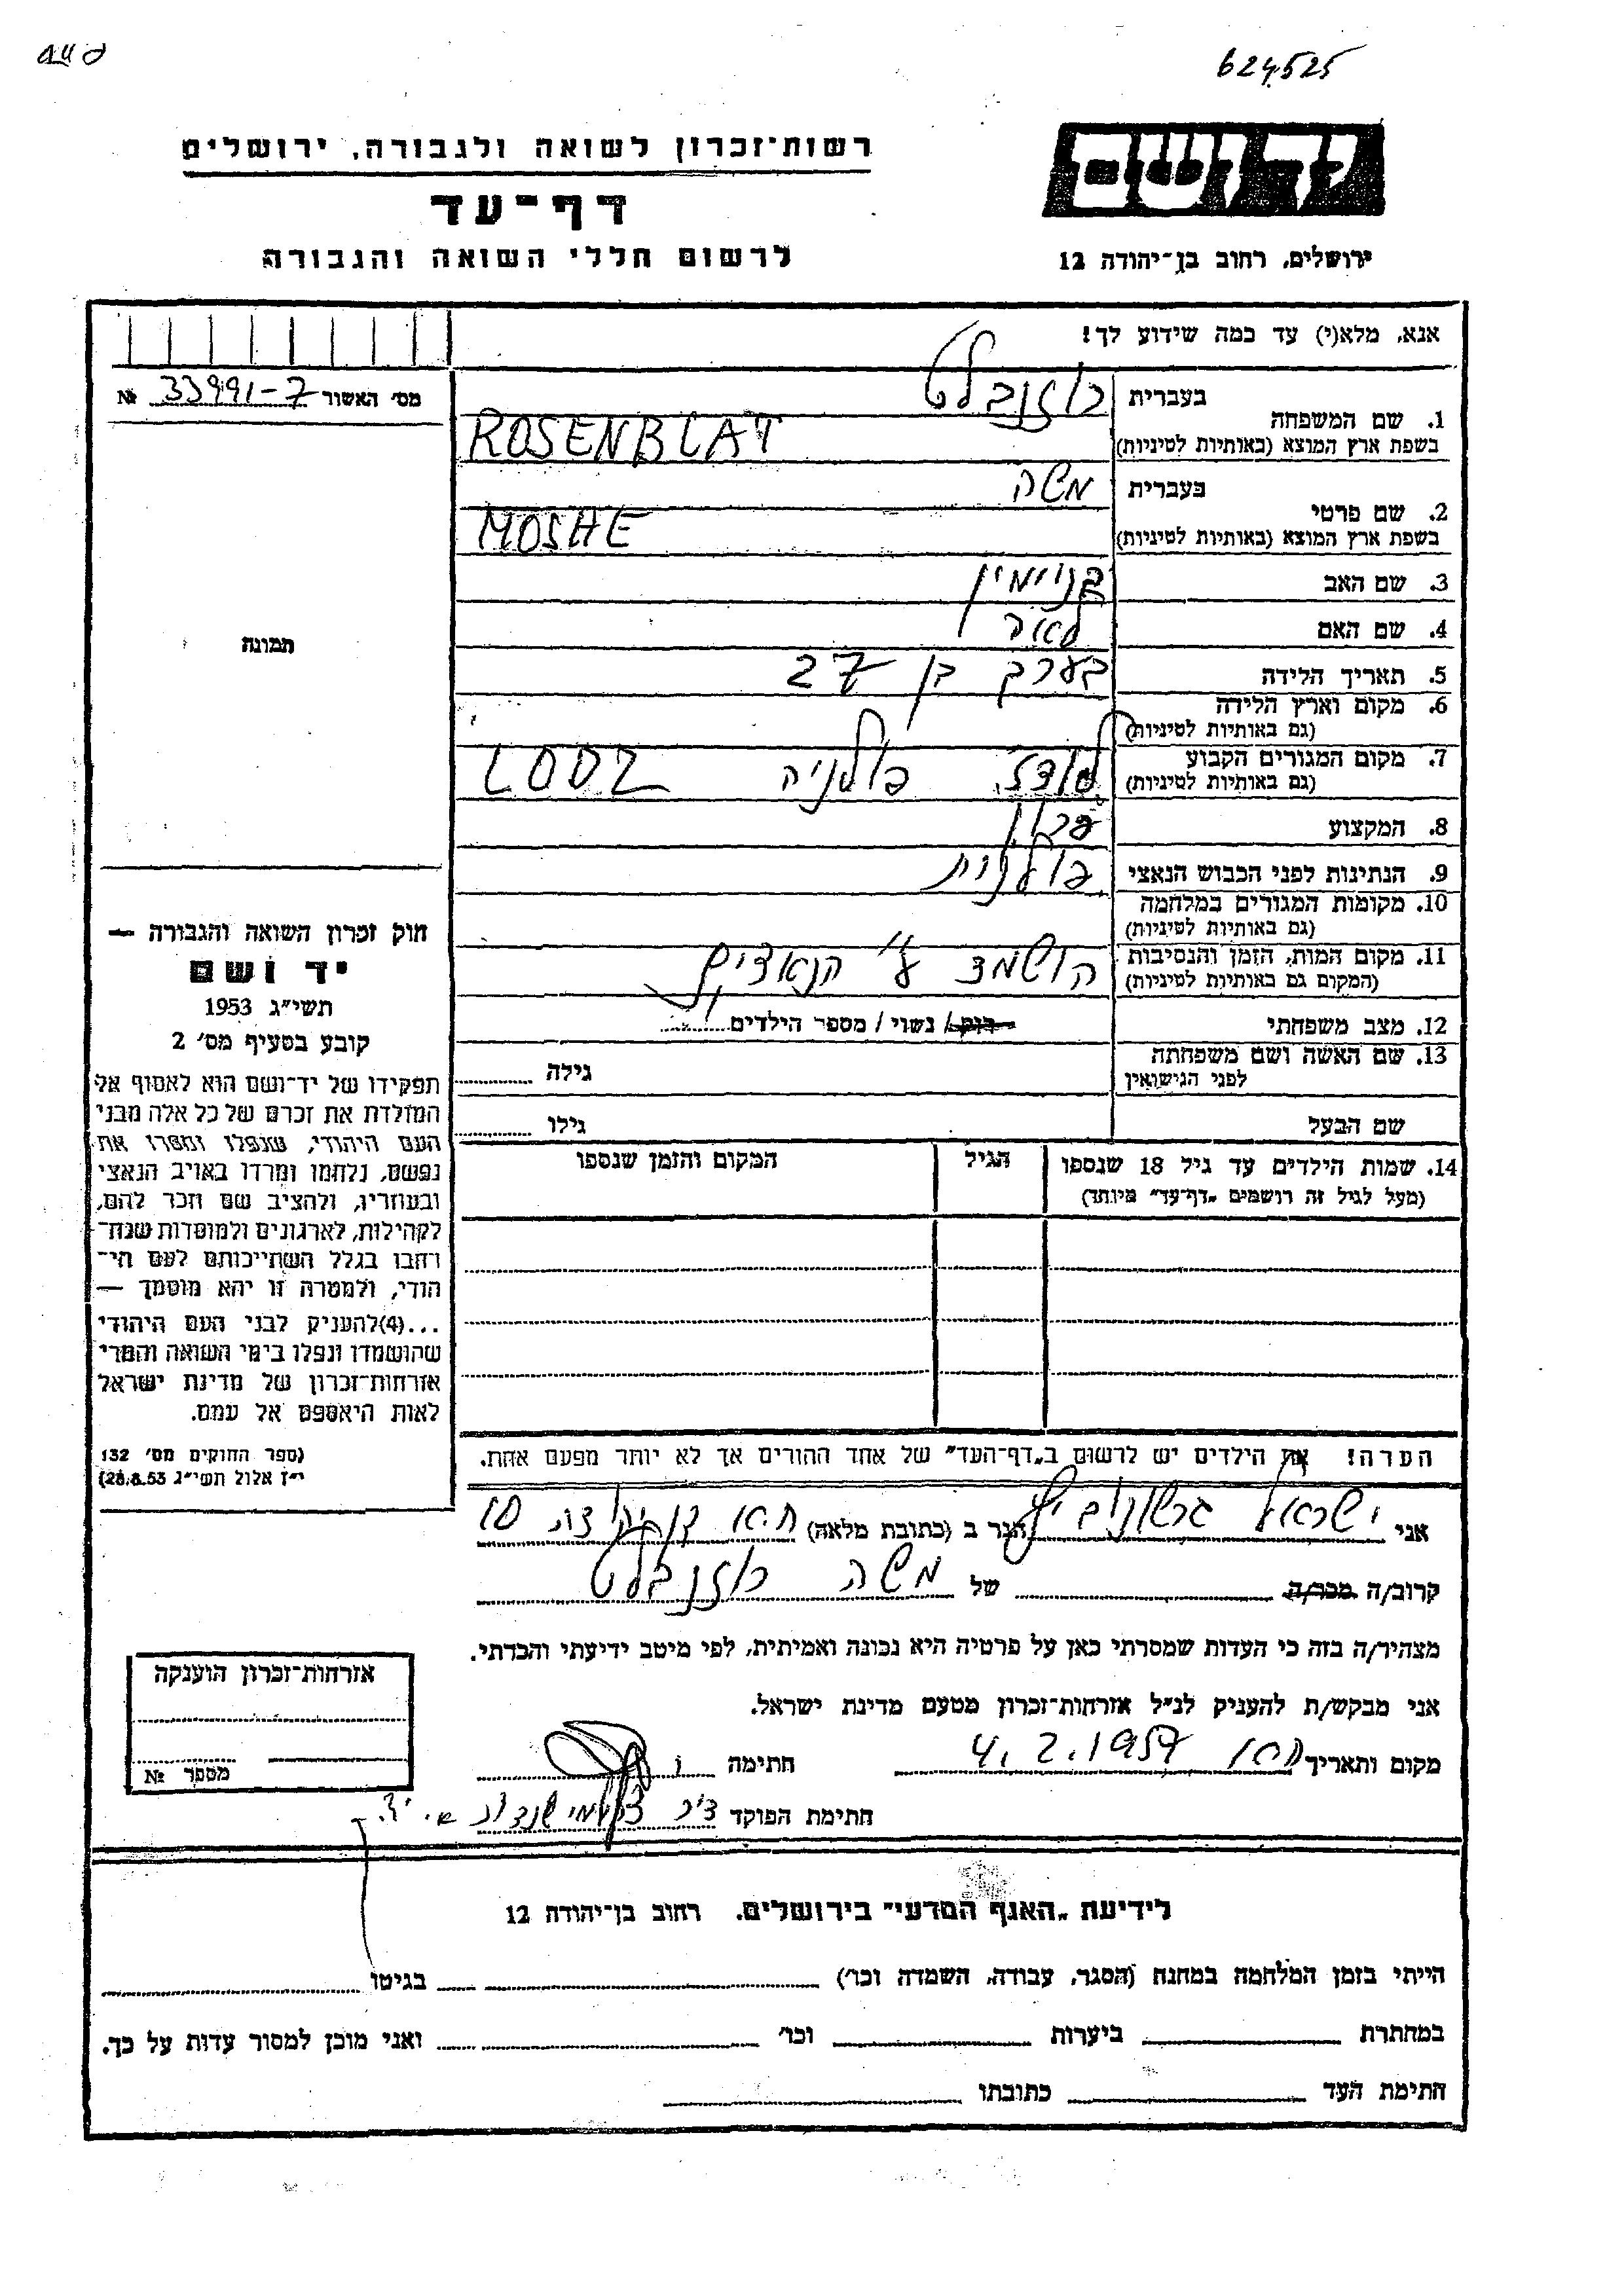 624525
רשות־זכרון לשואה ולגבורה, ירושלים
יד ושם
דף־עד
לרשום חללי השואה והגבורה
ירושלים, רחוב בן־יהודה 12
אנא, מלא(י) עד כמה שידוע לך!
מס׳ האשור 33991-7 №
1. שם המשפחה
בעברית רוזנבלט
בשפת ארץ המוצא (באותיות לטיניות) ROSENBLAT
2. שם פרטי
בעברית משה
בשפת ארץ המוצא (באותיות לטיניות) MOSHE
3. שם האב בנימין
4. שם האם לאה
תמונה
5. תאריך הלידה בערך בן 27
6. מקום וארץ הלידה
(גם באותיות לטיניות)
7. מקום המגורים הקבוע לודז פולניה LODZ
(גם באותיות לטיניות)
8. המקצוע
9. הנתינות לפני הכבוש הנאצי פולנית
10. מקומות המגורים במלחמה
(גם באותיות לטיניות)
11. מקום המות, הזמן והנסיבות הושמד ע״י הנאצים
(המקום גם באותיות לטיניות)
12. מצב משפחתי רווק / נשוי / מספר הילדים
13. שם האשה ושם משפחתה גילה
לפני הנישואין
שם הבעל גילו
14. שמות הילדים עד גיל 18 שנספו הגיל המקום והזמן שנספו
(מעל לגיל זה רושמים „דף־עד״ מיוחד)
חוק זכרון השואה והגבורה —
יד ושם
תשי״ג 1953
קובע בסעיף מס׳ 2
תפקידו של יד־ושם הוא לאסוף אל
המולדת את זכרם של כל אלה מבני
העם היהודי, שנפלו ומסרו את
נפשם, נלחמו ומרדו באויב הנאצי
ובעוזריו, ולהציב שם וזכר להם,
לקהילות, לארגונים ולמוסדות שנח־
רחבו בגלל השתייכותם לעם הי־
הודי, ולמטרה זו יהא מוסמך —
...(4)להעניק לבני העם היהודי
שהושמדו ונפלו בימי השואה והמרי
אזרחות־זכרון של מדינת ישראל
לאות היאספם אל עמם.
(ספר החוקים מס׳ 132
י״ז אלול תשי״ג 28.8.53)
הערה! את הילדים יש לרשום ב„דף־העד״ של אחד ההורים אך לא יותר מפעם אחת.
אני ישראל גרשונוביץ הגר ב (כתובת מלאה) 10
קרוב/ה מכר/ה של משה רוזנבלט
מצהיר/ה בזה כי העדות שמסרתי כאן על פרטיה היא נכונה ואמיתית, לפי מיטב ידיעתי והכרתי.
אני מבקש/ת להעניק לנ״ל אזרחות־זכרון מטעם מדינת ישראל.
מקום ותאריך 4.2.1957 חתימה
חתימת הפוקד
אזרחות־זכרון הוענקה
מספר №
לידיעת „האגף המדעי״ בירושלים, רחוב בן־יהודה 12
הייתי בזמן המלחמה במחנה (הסגר, עבודה, השמדה וכו׳) בגיטו
במחתרת ביערות וכו׳ ואני מוכן למסור עדות על כך.
חתימת העד כתובתו